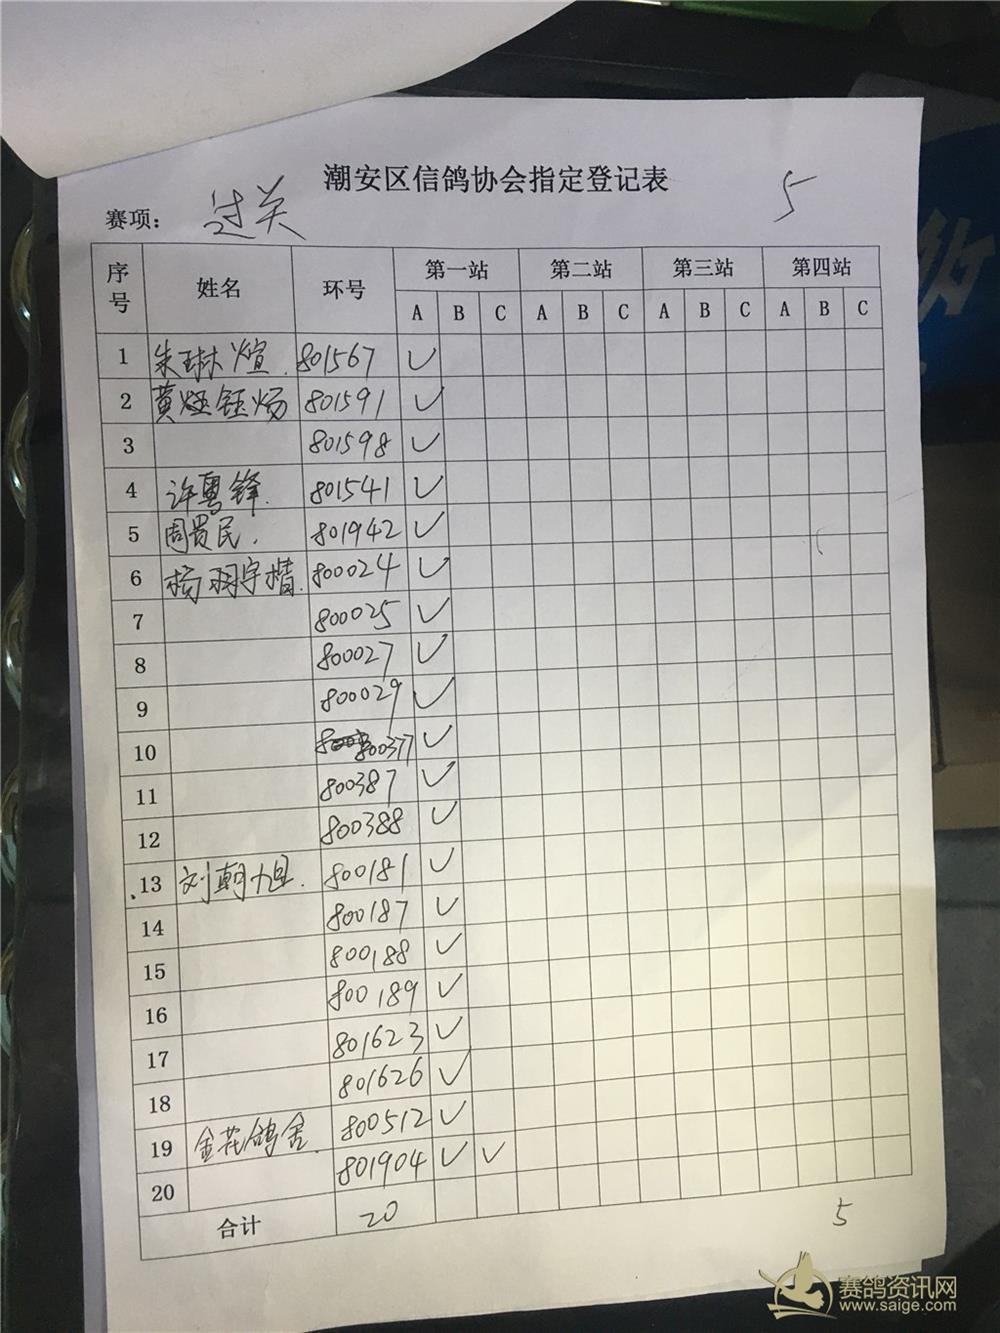 潮安区信鸽协会指定登记表
赛项： 过关 5
序号 姓名 环号 第一站 第二站 第三站 第四站
A B C A B C A B C A B C
1 朱琳煊 801567 ✓
2 黄烃钰炀 801591 ✓
3 801598 ✓
4 许粤锋 801541 ✓
5 周贵民 801942 ✓
6 杨羽宇楷 800024 ✓
7 800025 ✓
8 800027 ✓
9 800029 ✓
10 800377 ✓
11 800387 ✓
12 800388 ✓
13 刘朝旭 800181 ✓
14 800187 ✓
15 800188 ✓
16 800189 ✓
17 801623 ✓
18 801626 ✓
19 金花鸽舍 800512 ✓
20 801904 ✓ ✓
合计 20 5
赛鸽资讯网
www.saige.com